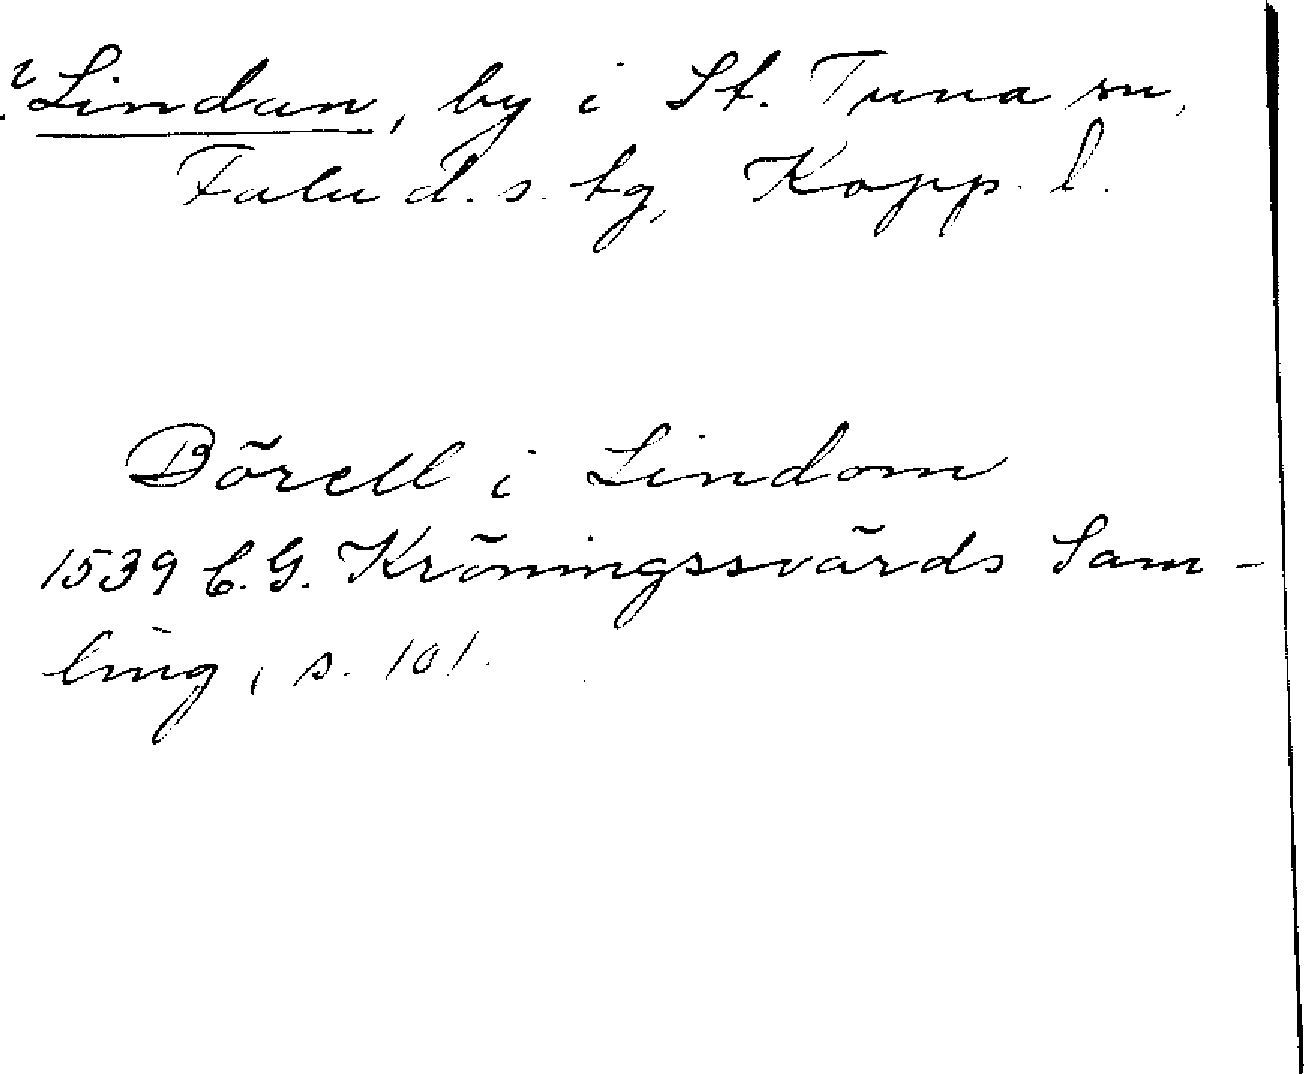 ? Lindan, by i St. Tuna sn,
Falu d.s. tg, Kopp. l.
Börell i Lindom
1539 C.G. Kröningssvärds Sam-
ling, s. 101.